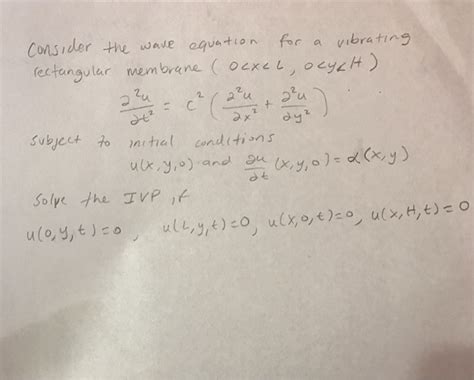 Consider the wave equation for a vibrating
rectangular membrane (0<x<L, 0<y<H)
∂²u/∂t² = c² (∂²u/∂x² + ∂²u/∂y²)
subject to initial conditions
u(x,y,0) and ∂u/∂t (x,y,0) = α(x,y)
Solve the IVP if
u(0,y,t)=0, u(L,y,t)=0, u(x,0,t)=0, u(x,H,t)=0